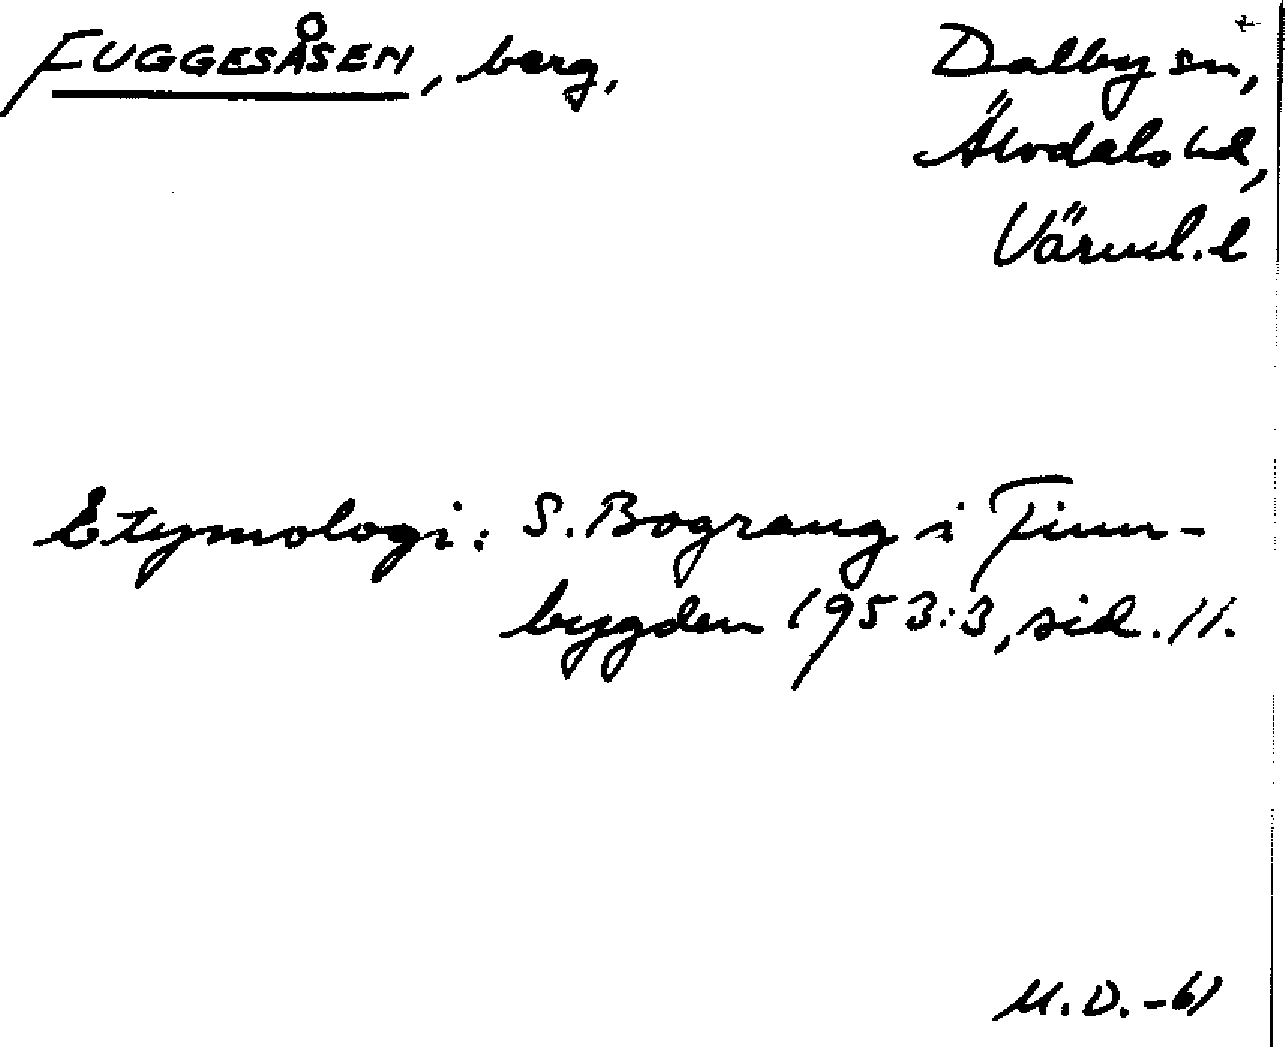 FUGGESÅSEN, berg,
Dalby sn,
Älvdals hd,
Värml. l
Etymologi: S. Bograng i Finn-
bygden 1953:3, sid. 11.
M.D. -61